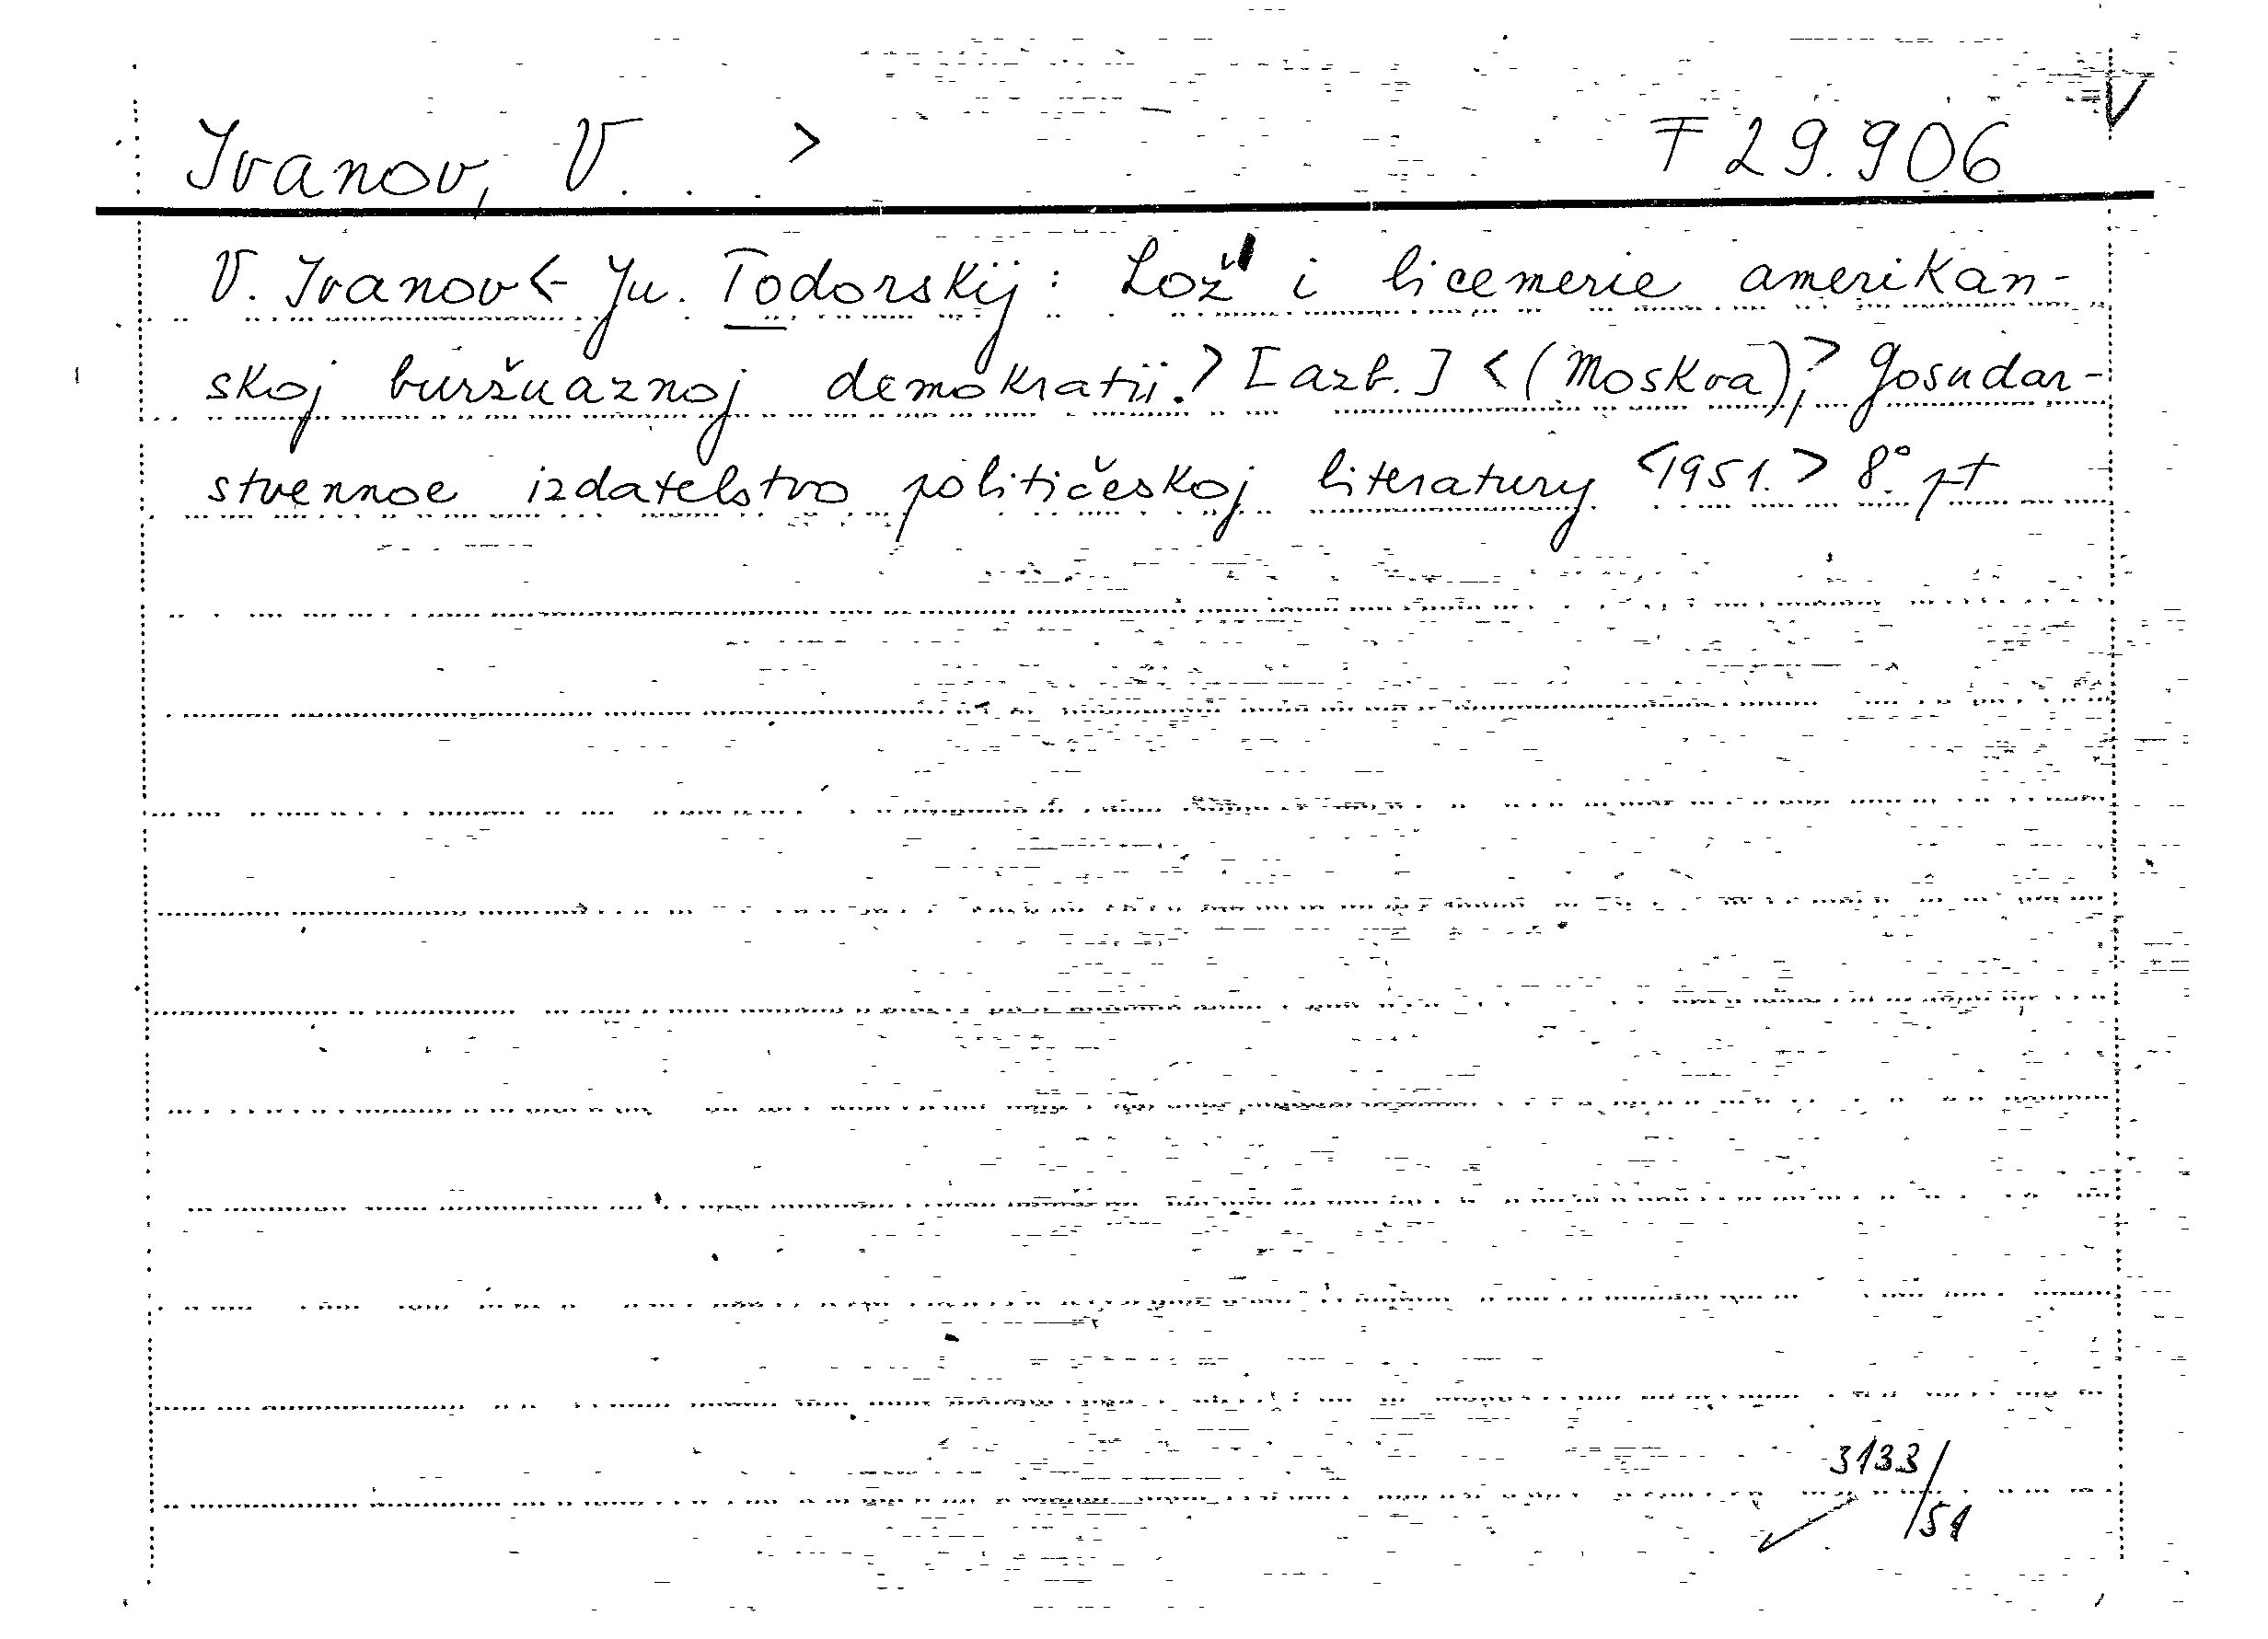 V
Ivanov, V. . . > F 29.906
V. Ivanov < Ju. Todorskij : Lož' i licemerie amerikan-
skoj buržuaznoj demokratii. > [azb.] < (Moskva), > Gosudar-
stvennoe izdatelstvo političeskoj literatury <1951.> 8°. pt
3133/51